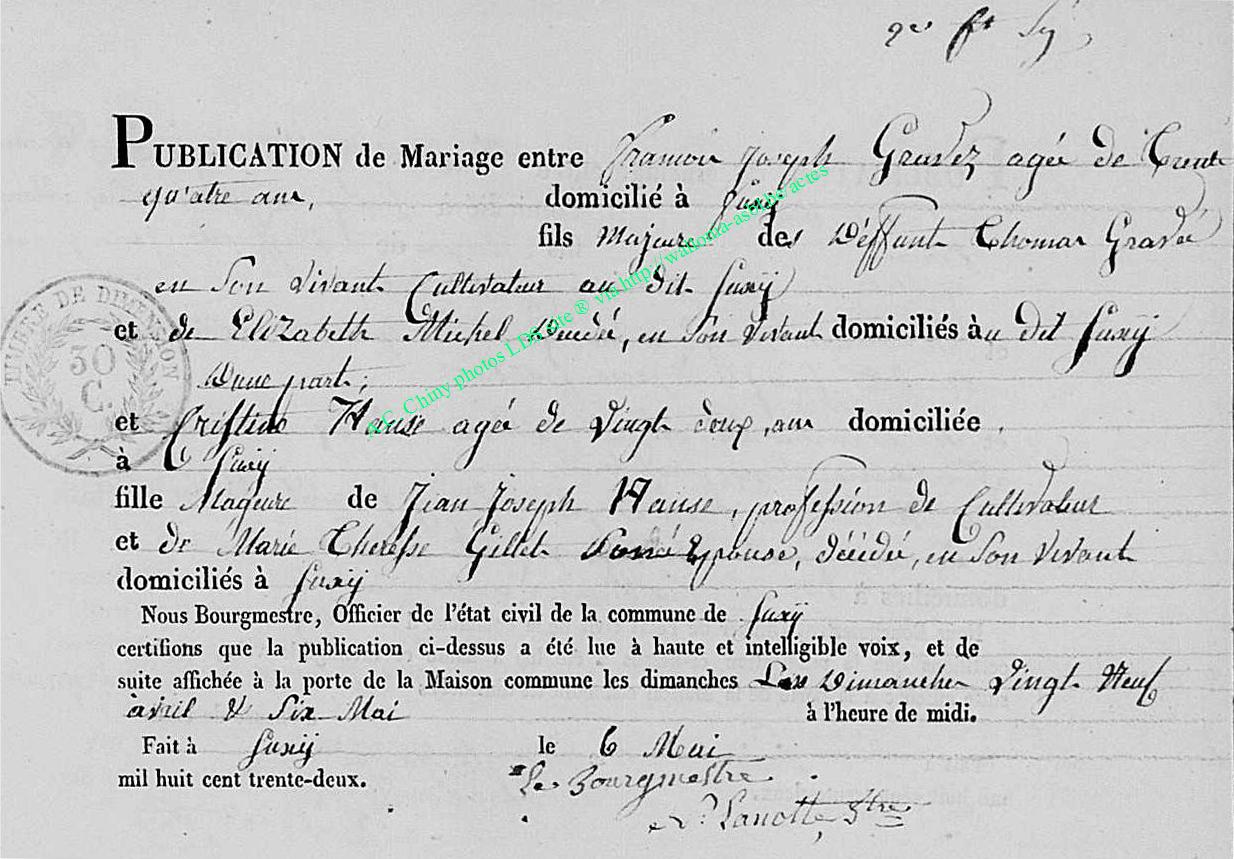 PUBLICATION de Mariage entre François Joseph Gravez agée de Trente
qu'atre ans, domicilié à Suxÿ
fils Majeure des Déffunt Thomas Gravée
en Son Vivant Cultivateur au dit Suxÿ
et de Elizabeth Michel Décédé, en Son Vivant domiciliés àu dit Suxÿ
Dune part;
et Cristine Hanse agée de Vingt deux, ans domiciliée
à Suxÿ
fille Mageure de Jean Joseph Hanse, profession de Cultivateur
et de Marie Theresse Gillet Epouse, décédée, en Son Vivant
domiciliés à Suxÿ
Nous Bourgmestre, Officier de l'état civil de la commune de Suxÿ
certifions que la publication ci-dessus a été lue à haute et intelligible voix, et de
suite affichée à la porte de la Maison commune les dimanches Les Dimanche Vingt Neuf
avril & Six Mai à l'heure de midi.
Fait à Suxÿ le 6 Mai
mil huit cent trente-deux.
Le Bourgmestre
Lanotte,
TIMBRE DE DIMENSION
50
C.
AC Chiny photos LDS site ® via http://wallonia-asbl.be/actes